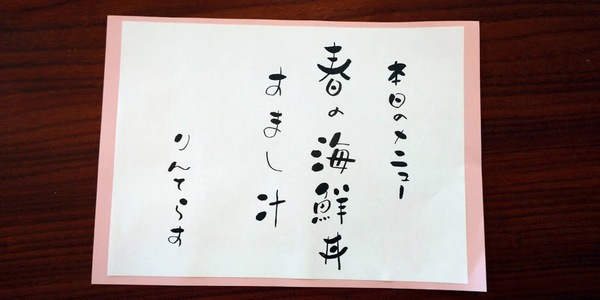 本日のメニュー
春の海鮮丼
すまし汁
りんてらす